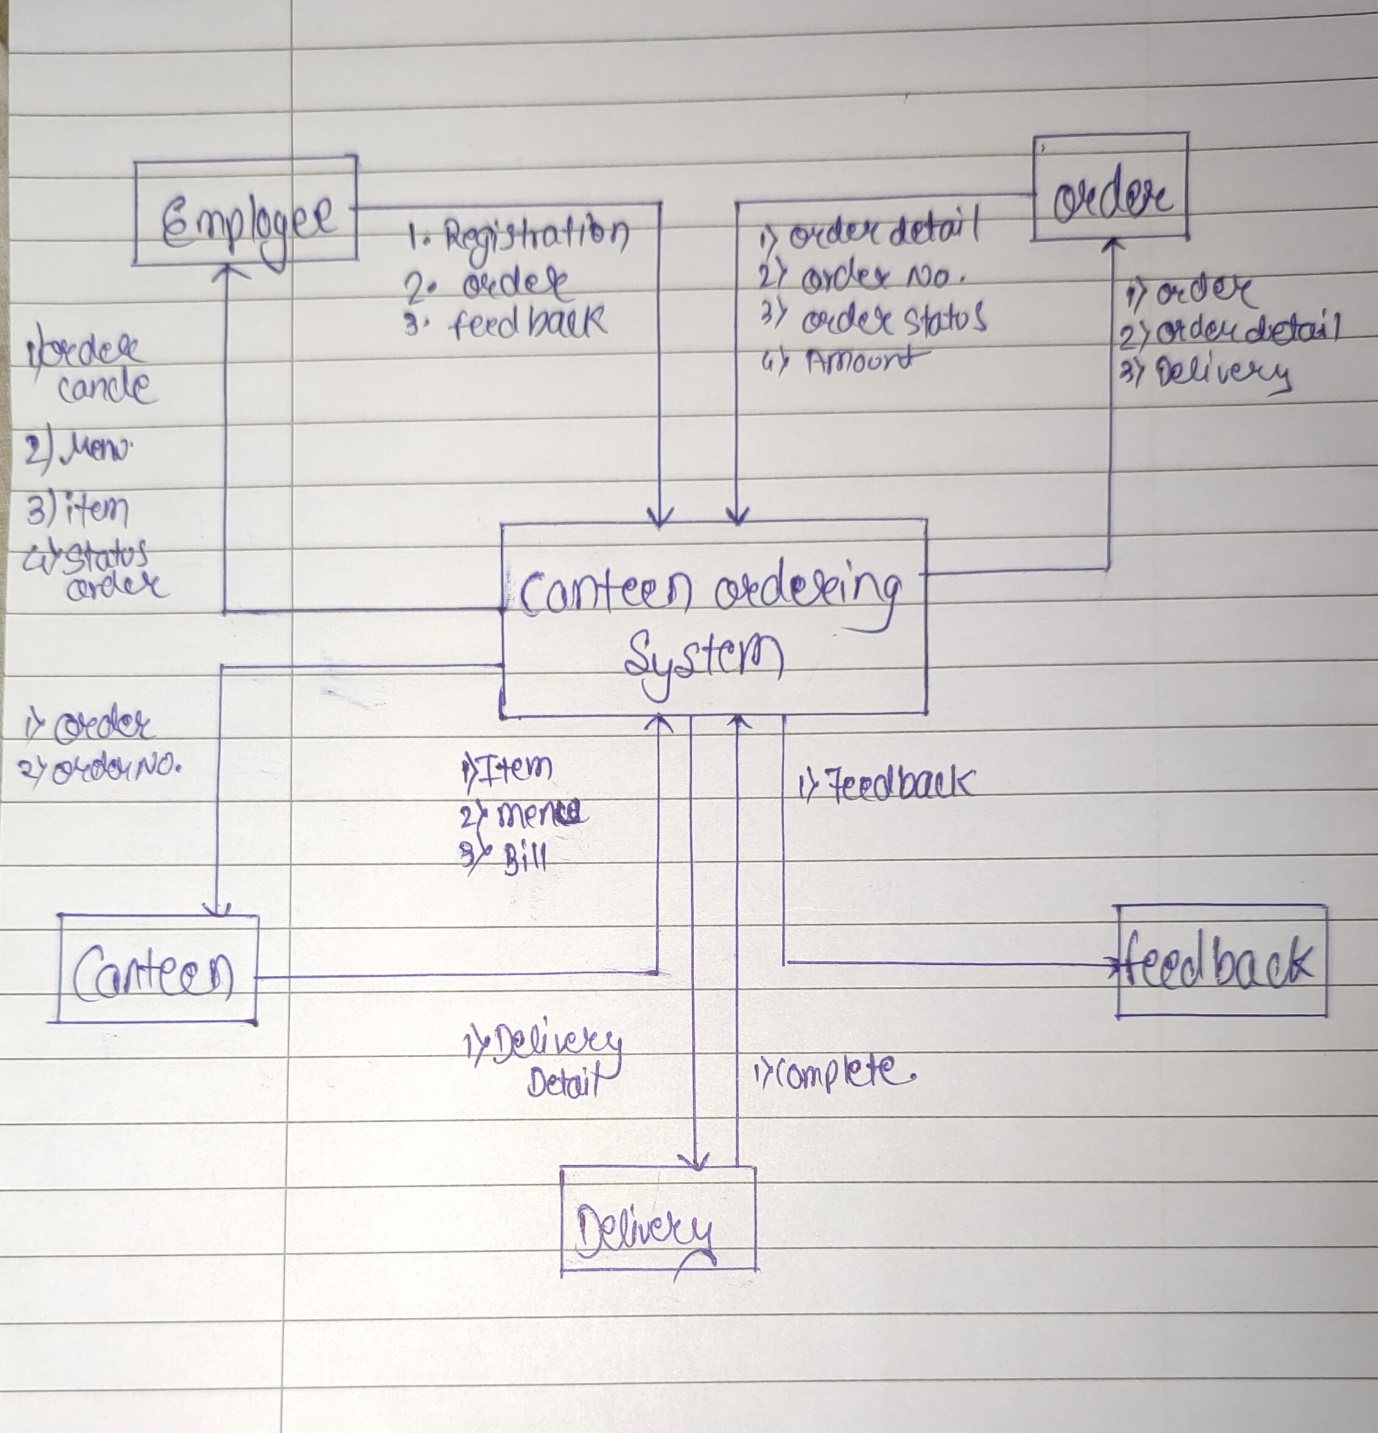 Employee
order
1. Registration
2. order
3. feedback
1) order detail
2) order No.
3) order status
4) Amount
1) order
2) order detail
3) Delivery
1) order
cancle
2) Menu
3) item
4) status
order
Canteen ordering
System
1) order
2) order NO.
1) Item
2) menu
3) Bill
1) Feedback
Canteen
feedback
1) Delivery
Detail
1) complete.
Delivery